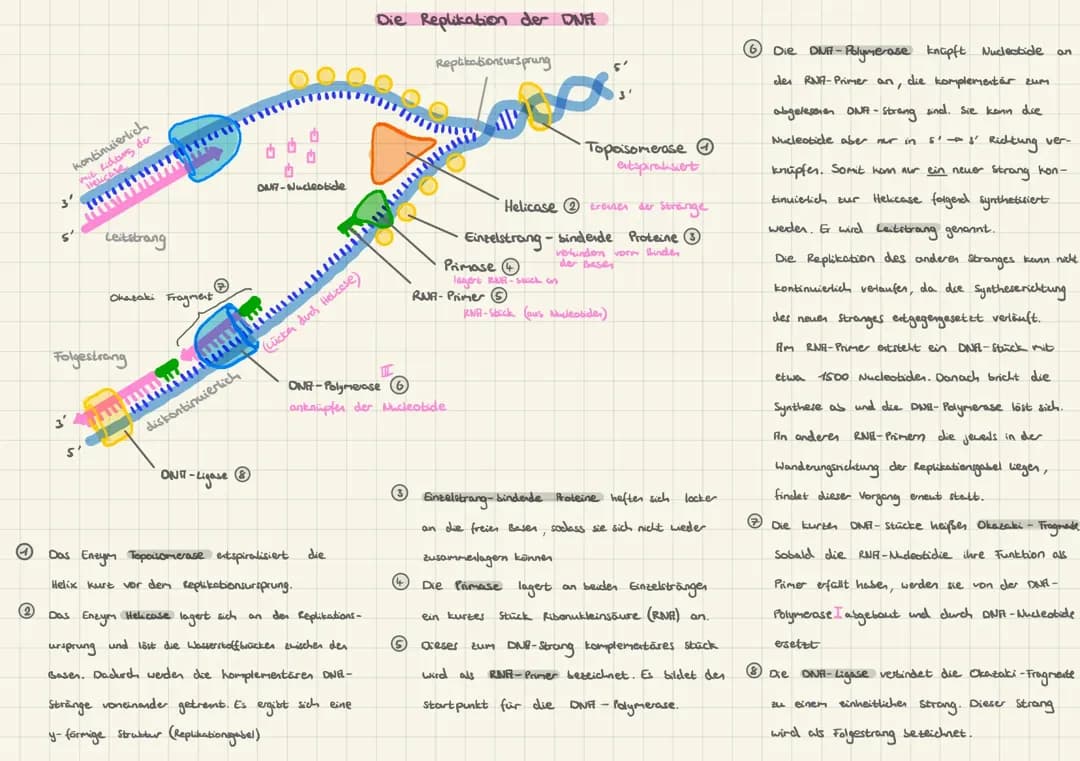 Die Replikation der DNA
Replikationsursprung
5'
3'
kontinuierlich
mit Richtung der
Helicase
3'
5'
Leitstrang
DNA-Nucleotide
Topoisomerase ①
entspiralisiert
Helicase ② trennen der Stränge
Einzelstrang-bindende Proteine ③
verhindern vorm Binden
der Basen
Primase ④
lagert RNA-Stück an
RNA-Primer ⑤
RNA-Stück (aus Nucleotiden)
⑦
Okazaki Fragment
(Lücken durch Helicase)
Folgestrang
diskontinuierlich
III
DNA-Polymerase ⑥
anknüpfen der Nucleotide
3'
5'
DNA-Ligase ⑧
① Das Enzym Topoisomerase entspiralisiert die
Helix kurz vor dem Replikationsursprung.
② Das Enzym Helicase lagert sich an den Replikations-
ursprung und löst die Wasserstoffbrücken zwischen den
Basen. Dadurch werden die komplementären DNA-
Stränge voneinander getrennt. Es ergibt sich eine
y-förmige Struktur (Replikationsgabel)
③ Einzelstrang-bindende Proteine heften sich locker
an die freien Basen, sodass sie sich nicht wieder
zusammenlagern können
④ Die Primase lagert an beiden Einzelstränger
ein kurzes Stück Ribonukleinsäure (RNA) an.
⑤ Dieses zum DNA-Strang komplementäres Stück
wird als RNA-Primer bezeichnet. Es bildet den
Startpunkt für die DNA-Polymerase.
⑥ Die DNA-Polymerase knüpft Nucleotide an
den RNA-Primer an, die komplementär zum
abgelesenen DNA-Strang sind. Sie kann die
Nucleotide aber nur in 5' → 3' Richtung ver-
knüpfen. Somit kann nur ein neuer Strang kon-
tinuierlich zur Helicase folgend synthetisiert
werden. Er wird Leitstrang genannt.
Die Replikation des anderen Stranges kann nicht
kontinuierlich verlaufen, da die Syntheserichtung
des neuen Stranges entgegengesetzt verläuft.
Am RNA-Primer entsteht ein DNA-Stück mit
etwa 1500 Nucleotiden. Danach bricht die
Synthese ab und die DNA-Polymerase löst sich.
An anderen RNA-Primern die jeweils in der
Wanderungsrichtung der Replikationsgabel liegen,
findet dieser Vorgang erneut statt.
⑦ Die kurzen DNA-Stücke heißen Okazaki-Fragmente
Sobald die RNA-Nucleotide ihre Funktion als
Primer erfüllt haben, werden sie von der DNA-
Polymerase I abgebaut und durch DNA-Nucleotide
ersetzt
⑧ Die DNA-Ligase verbindet die Okazaki-Fragmente
zu einem einheitlichen Strang. Dieser Strang
wird als Folgestrang bezeichnet.